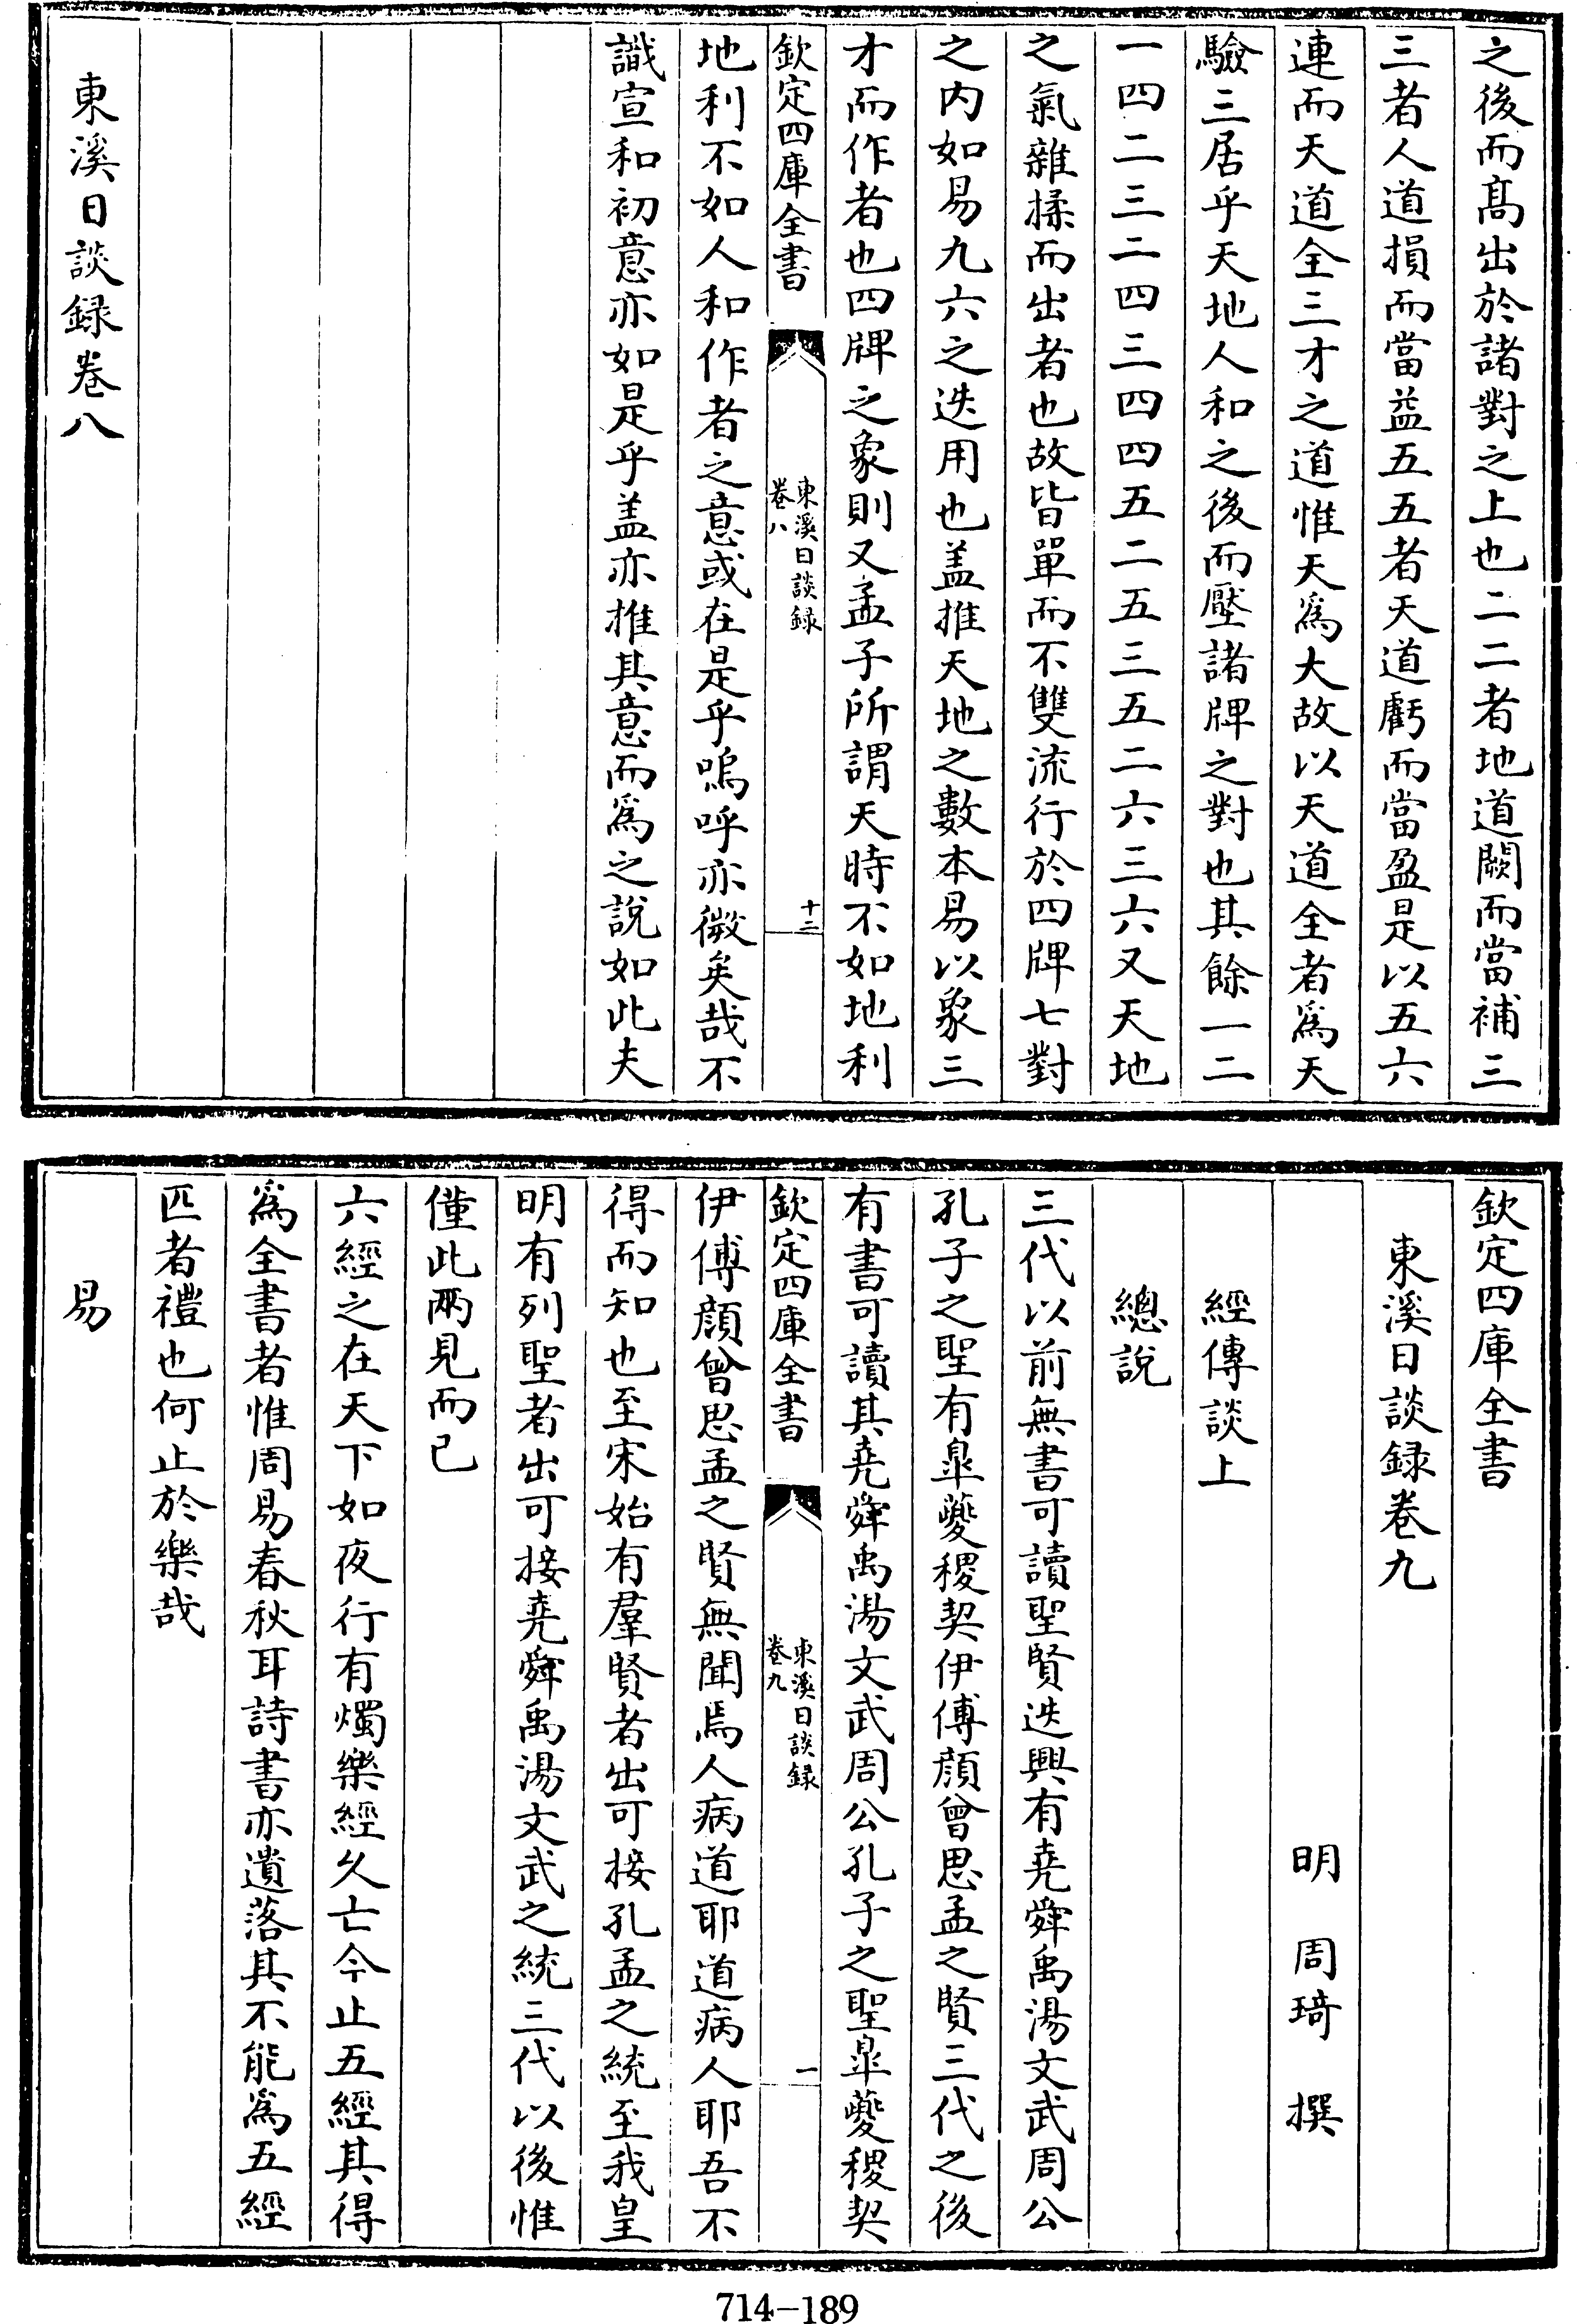 之後而髙出於諸對之上也二二者地道闕而當補三
三者人道損而當益五五者天道虧而當盈是以五六
連而天道全三才之道惟天為大故以天道全者為天
驗三居乎天地人和之後而壓諸牌之對也其餘一二
一四二三二四三四四五二五三五二六三六又天地
之氣雜揉而出者也故皆單而不雙流行於四牌七對
之内如易九六之迭用也盖推天地之數本易以象三
才而作者也四牌之象則又孟子所謂天時不如地利
欽定四庫全書
東溪日談録
卷八
十三
地利不如人和作者之意或在是乎嗚呼亦微矣哉不
識宣和初意亦如是乎盖亦推其意而為之說如此夫
東溪日談録卷八
欽定四庫全書
東溪日談録卷九
明 周琦 撰
經傳談上
總說
三代以前無書可讀聖賢迭興有堯舜禹湯文武周公
孔子之聖有臯夔稷契伊傅顔曾思孟之賢三代之後
有書可讀其堯舜禹湯文武周公孔子之聖臯夔稷契
欽定四庫全書
東溪日談録
卷九
一
伊傅顔曾思孟之賢無聞焉人病道耶道病人耶吾不
得而知也至宋始有羣賢者出可接孔孟之統至我皇
明有列聖者出可接堯舜禹湯文武之統三代以後惟
僅此兩見而已
六經之在天下如夜行有燭樂經久亡今止五經其得
為全書者惟周易春秋耳詩書亦遺落其不能為五經
匹者禮也何止於樂哉
易
714-189